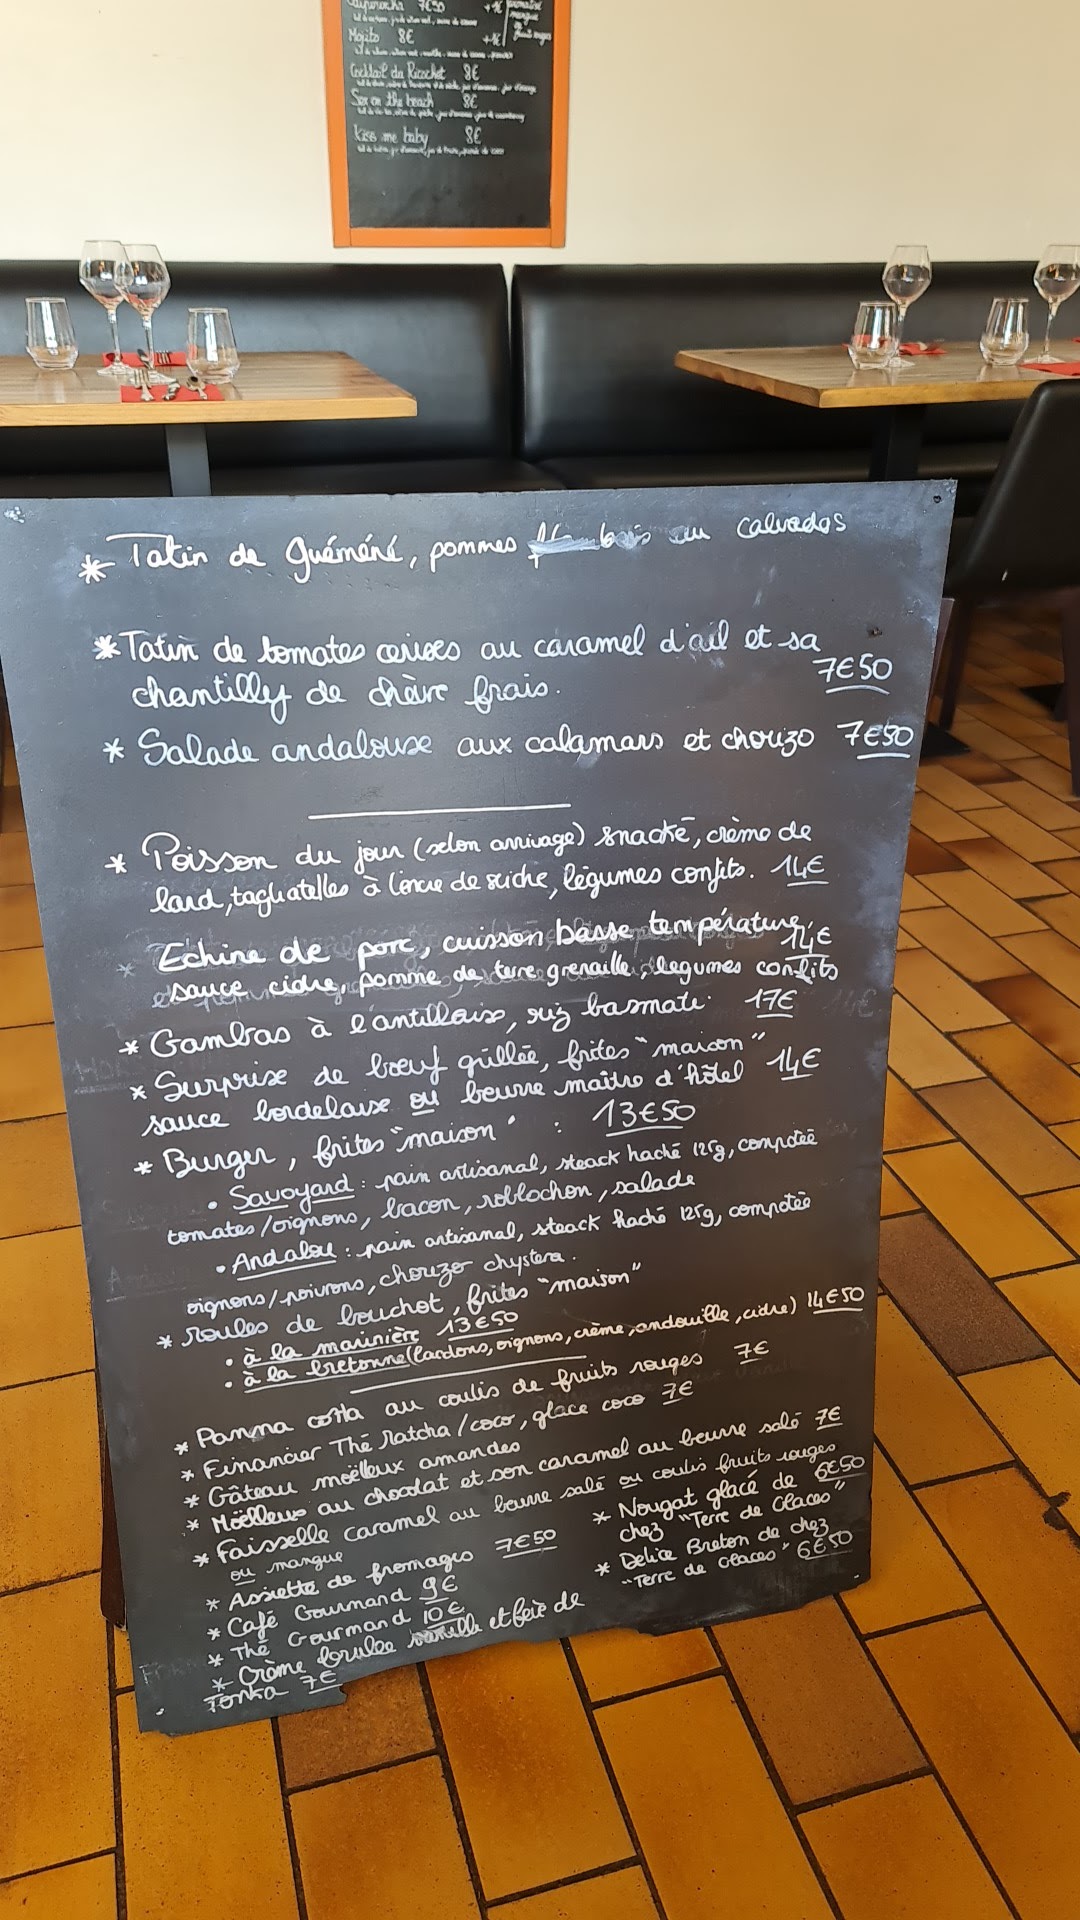 7€50 +1€
Mojito 8€
+1€
Cocktail du Ricochet 8€
Sex on the beach 8€
Kiss me baby 8€
* Tatin de Guéméné, pommes au calvados
* Tatin de tomates cerises au caramel d'ail et sa
chantilly de chèvre frais. 7€50
* Salade andalouse aux calamars et chorizo 7€50
* Poisson du jour (selon arrivage) snacké, crème de
lard, tagliatelles à l'encre de seiche, légumes confits. 14€
* Echine de porc, cuisson basse température,
sauce cidre, pomme de terre grenaille, légumes confits 14€
* Gambas à l'antillaise, riz basmati. 17€
* Surprise de boeuf grillée, frites "maison"
sauce bordelaise ou beurre maître d'hôtel 14€
* Burger, frites "maison" : 13€50
• Savoyard : pain artisanal, steack haché 125g, compotée
tomates/oignons, bacon, roblochon, salade
• Andalou : pain artisanal, steack haché 125g, compotée
oignons/poivrons, chorizo chystera.
* Moules de bouchot, frites "maison"
• à la marinière 13€50
• à la bretonne (lardons, oignons, crème, andouille, cidre) 14€50
* Panna cotta au coulis de fruits rouges 7€
* Financier Thé Matcha/coco, glace coco 7€
* Gâteau moëlleux amandes
* Moëlleux au chocolat et son caramel au beurre salé 7€
* Faisselle caramel au beurre salé ou coulis fruits rouges
ou mangue
* Assiette de fromages 7€50
* Café Gourmand 9€
* Thé Gourmand 10€
* Crème brulée vanille et fève de
Tonka 7€
* Nougat glacé de 6€50
chez "Terre de Glaces"
* Délice Breton de chez
"Terre de Glaces" 6€50